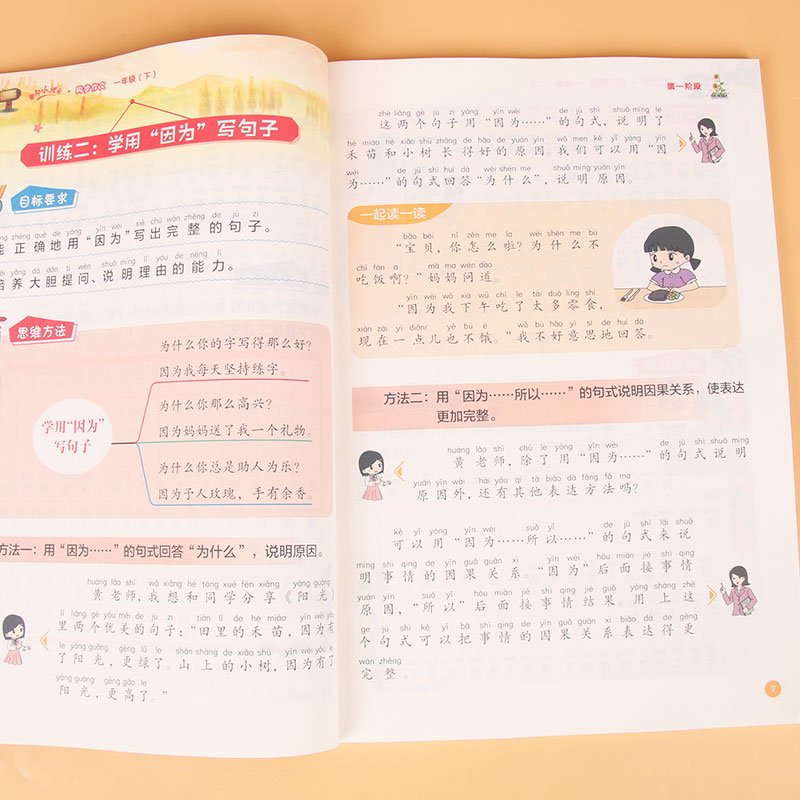 同步作文 一年级（下）
训练二：学用“因为”写句子
目标要求
zhèng què de yòng yīn wèi xiě chū wán zhěng de jù zi
能正确地用“因为”写出完整的句子。
yǎng dà dǎn tí wèn shuō míng lǐ yóu de néng lì
培养大胆提问、说明理由的能力。
思维方法
为什么你的字写得那么好？
因为我每天坚持练字。
学用“因为”
写句子
为什么你那么高兴？
因为妈妈送了我一个礼物。
为什么你总是助人为乐？
因为予人玫瑰，手有余香。
方法一：用“因为……”的句式回答“为什么”，说明原因。
huáng lǎo shī wǒ xiǎng hé tóng xué fēn xiǎng yáng guāng
黄老师，我想和同学分享《阳光》
lǐ liǎng gè yōu měi de jù zi tián lǐ de hé miáo yīn wèi
里两个优美的句子：“田里的禾苗，因为有
yáng guāng gèng lǜ le shān shàng de xiǎo shù yīn wèi
了阳光，更绿了。山上的小树，因为有了
yáng guāng gèng gāo le
阳光，更高了。”
第一阶段
zhè liǎng gè jù zi yòng yīn wèi de jù shì shuō míng le
这两个句子用“因为……”的句式，说明了
hé miáo hé xiǎo shù zhǎng de hǎo de yuán yīn wǒ men kě yǐ yòng yīn
禾苗和小树长得好的原因。我们可以用“因
wèi de jù shì huí dá wèi shén me shuō míng yuán yīn
为……”的句式回答“为什么”，说明原因。
一起读一读
bǎo bèi nǐ zěn me la wèi shén me bù
“宝贝，你怎么啦？为什么不
chī fàn a mā ma wèn dào
吃饭啊？”妈妈问道。
yīn wèi wǒ xià wǔ chī le tài duō líng shí
“因为我下午吃了太多零食，
xiàn zài yì diǎnr yě bú è wǒ bù hǎo yì si de huí dá
现在一点儿也不饿。”我不好意思地回答。
方法二：用“因为……所以……”的句式说明因果关系，使表达
更加完整。
huáng lǎo shī chú le yòng yīn wèi de jù shì shuō míng
黄老师，除了用“因为……”的句式说明
yuán yīn wài hái yǒu qí tā biǎo dá fāng fǎ ma
原因外，还有其他表达方法吗？
kě yǐ yòng yīn wèi suǒ yǐ de jù shì lái shuō
可以用“因为……所以……”的句式来说
míng shì qing de yīn guǒ guān xi yīn wèi hòu miàn jiē shì qing
明事情的因果关系。“因为”后面接事情
yuán yīn suǒ yǐ hòu miàn jiē shì qing jié guǒ yòng shàng zhè
原因，“所以”后面接事情结果。用上这
gè jù shì kě yǐ bǎ shì qing de yīn guǒ guān xi biǎo dá de gèng
个句式可以把事情的因果关系表达得更
wán zhěng
完整。
7